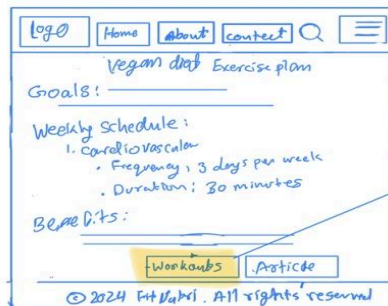 Logo Home About contect
Vegan diet Exercise plan
Goals:
Weekly Schedule:
1. Cardiovascular
• Frequency: 3 days per week
• Duration: 30 minutes
Benefits:
Workouts Article
© 2024 FitNutri. All rights reserved